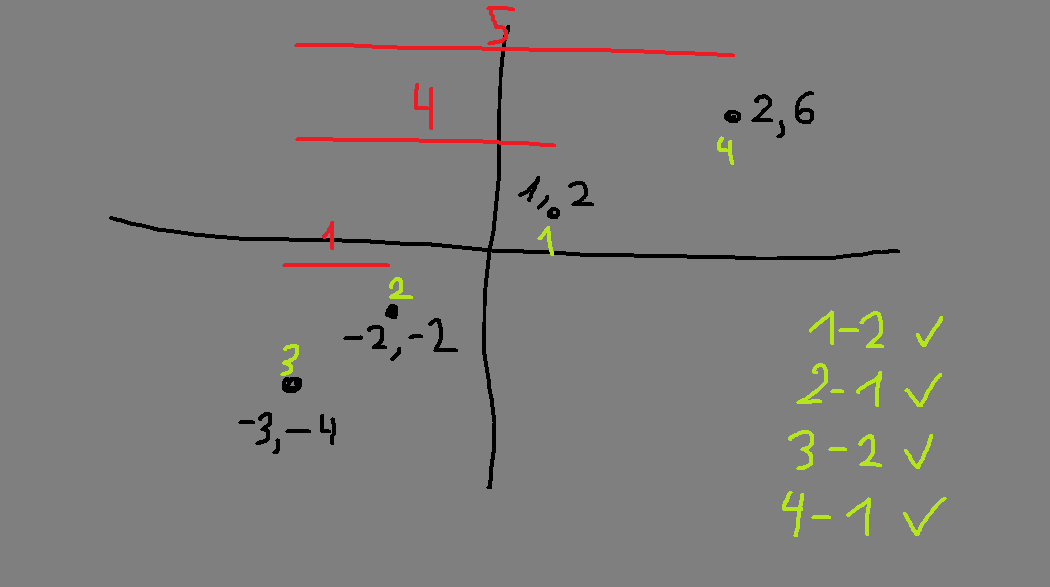 5
4
2,6
4
1,2
1
1
2
-2,-2
3
-3,-4
1-2 ✓
2-1 ✓
3-2 ✓
4-1 ✓